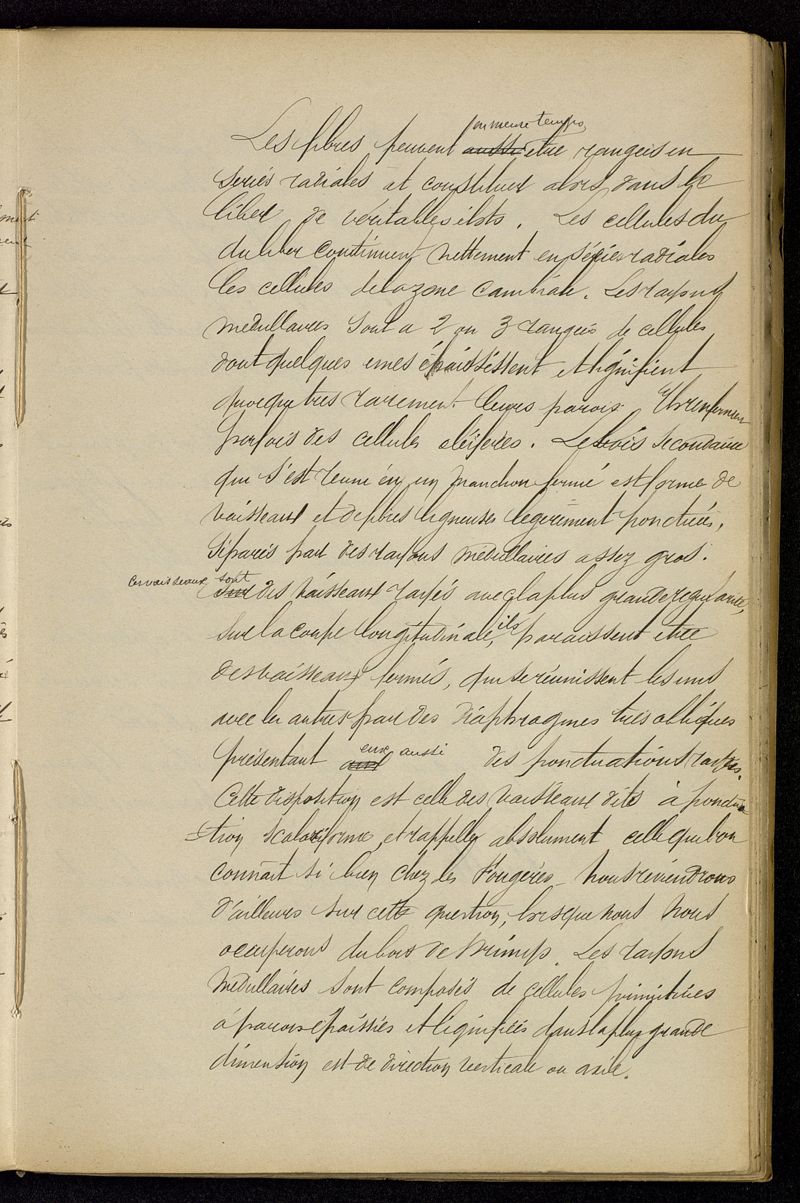 en meme temps
Les fibres peuvent aussi etre rangées en
series radiales et constituer alors dans le
liber de véritables ilots. Les cellules du
du liber continuent nettement en séries radiales
les cellules de la zone cambiale. Les rayons
medullaires sont a 2 ou 3 rangées de cellules
dont quelques unes épaississent et lignifient
quoique tres rarement leurs parois. Ils renferment
parfois des cellules oléiferes. Le bois secondaire
qui s'est reuni en un manchon fermé est formé de
vaisseaux et de fibres ligneuses légèrement ponctuées,
séparés par des rayons medullaires assez gros.
Ces vaisseaux sont
des vaisseaux rayés avec la plus grande
sur la coupe longitudinale, ils paraissent etre
des vaisseaux fermés, qui se réunissent les uns
avec les autres par des diaphragmes très obliques
présentant eux aussi des ponctuations rayées.
Cette disposition est celle des vaisseaux dits à ponctua-
-tion scalariforme, et rappelle absolument celle que l'on
connait si bien chez les Fougères. nous reviendrons
d'ailleurs sur cette question, lorsque nous nous
occuperons du bois de Drimys. Les rayons
medullaires sont composés de cellules primitives
à parois épaissies et lignifiées dont la plus grande
dimension est de direction verticale ou axile.